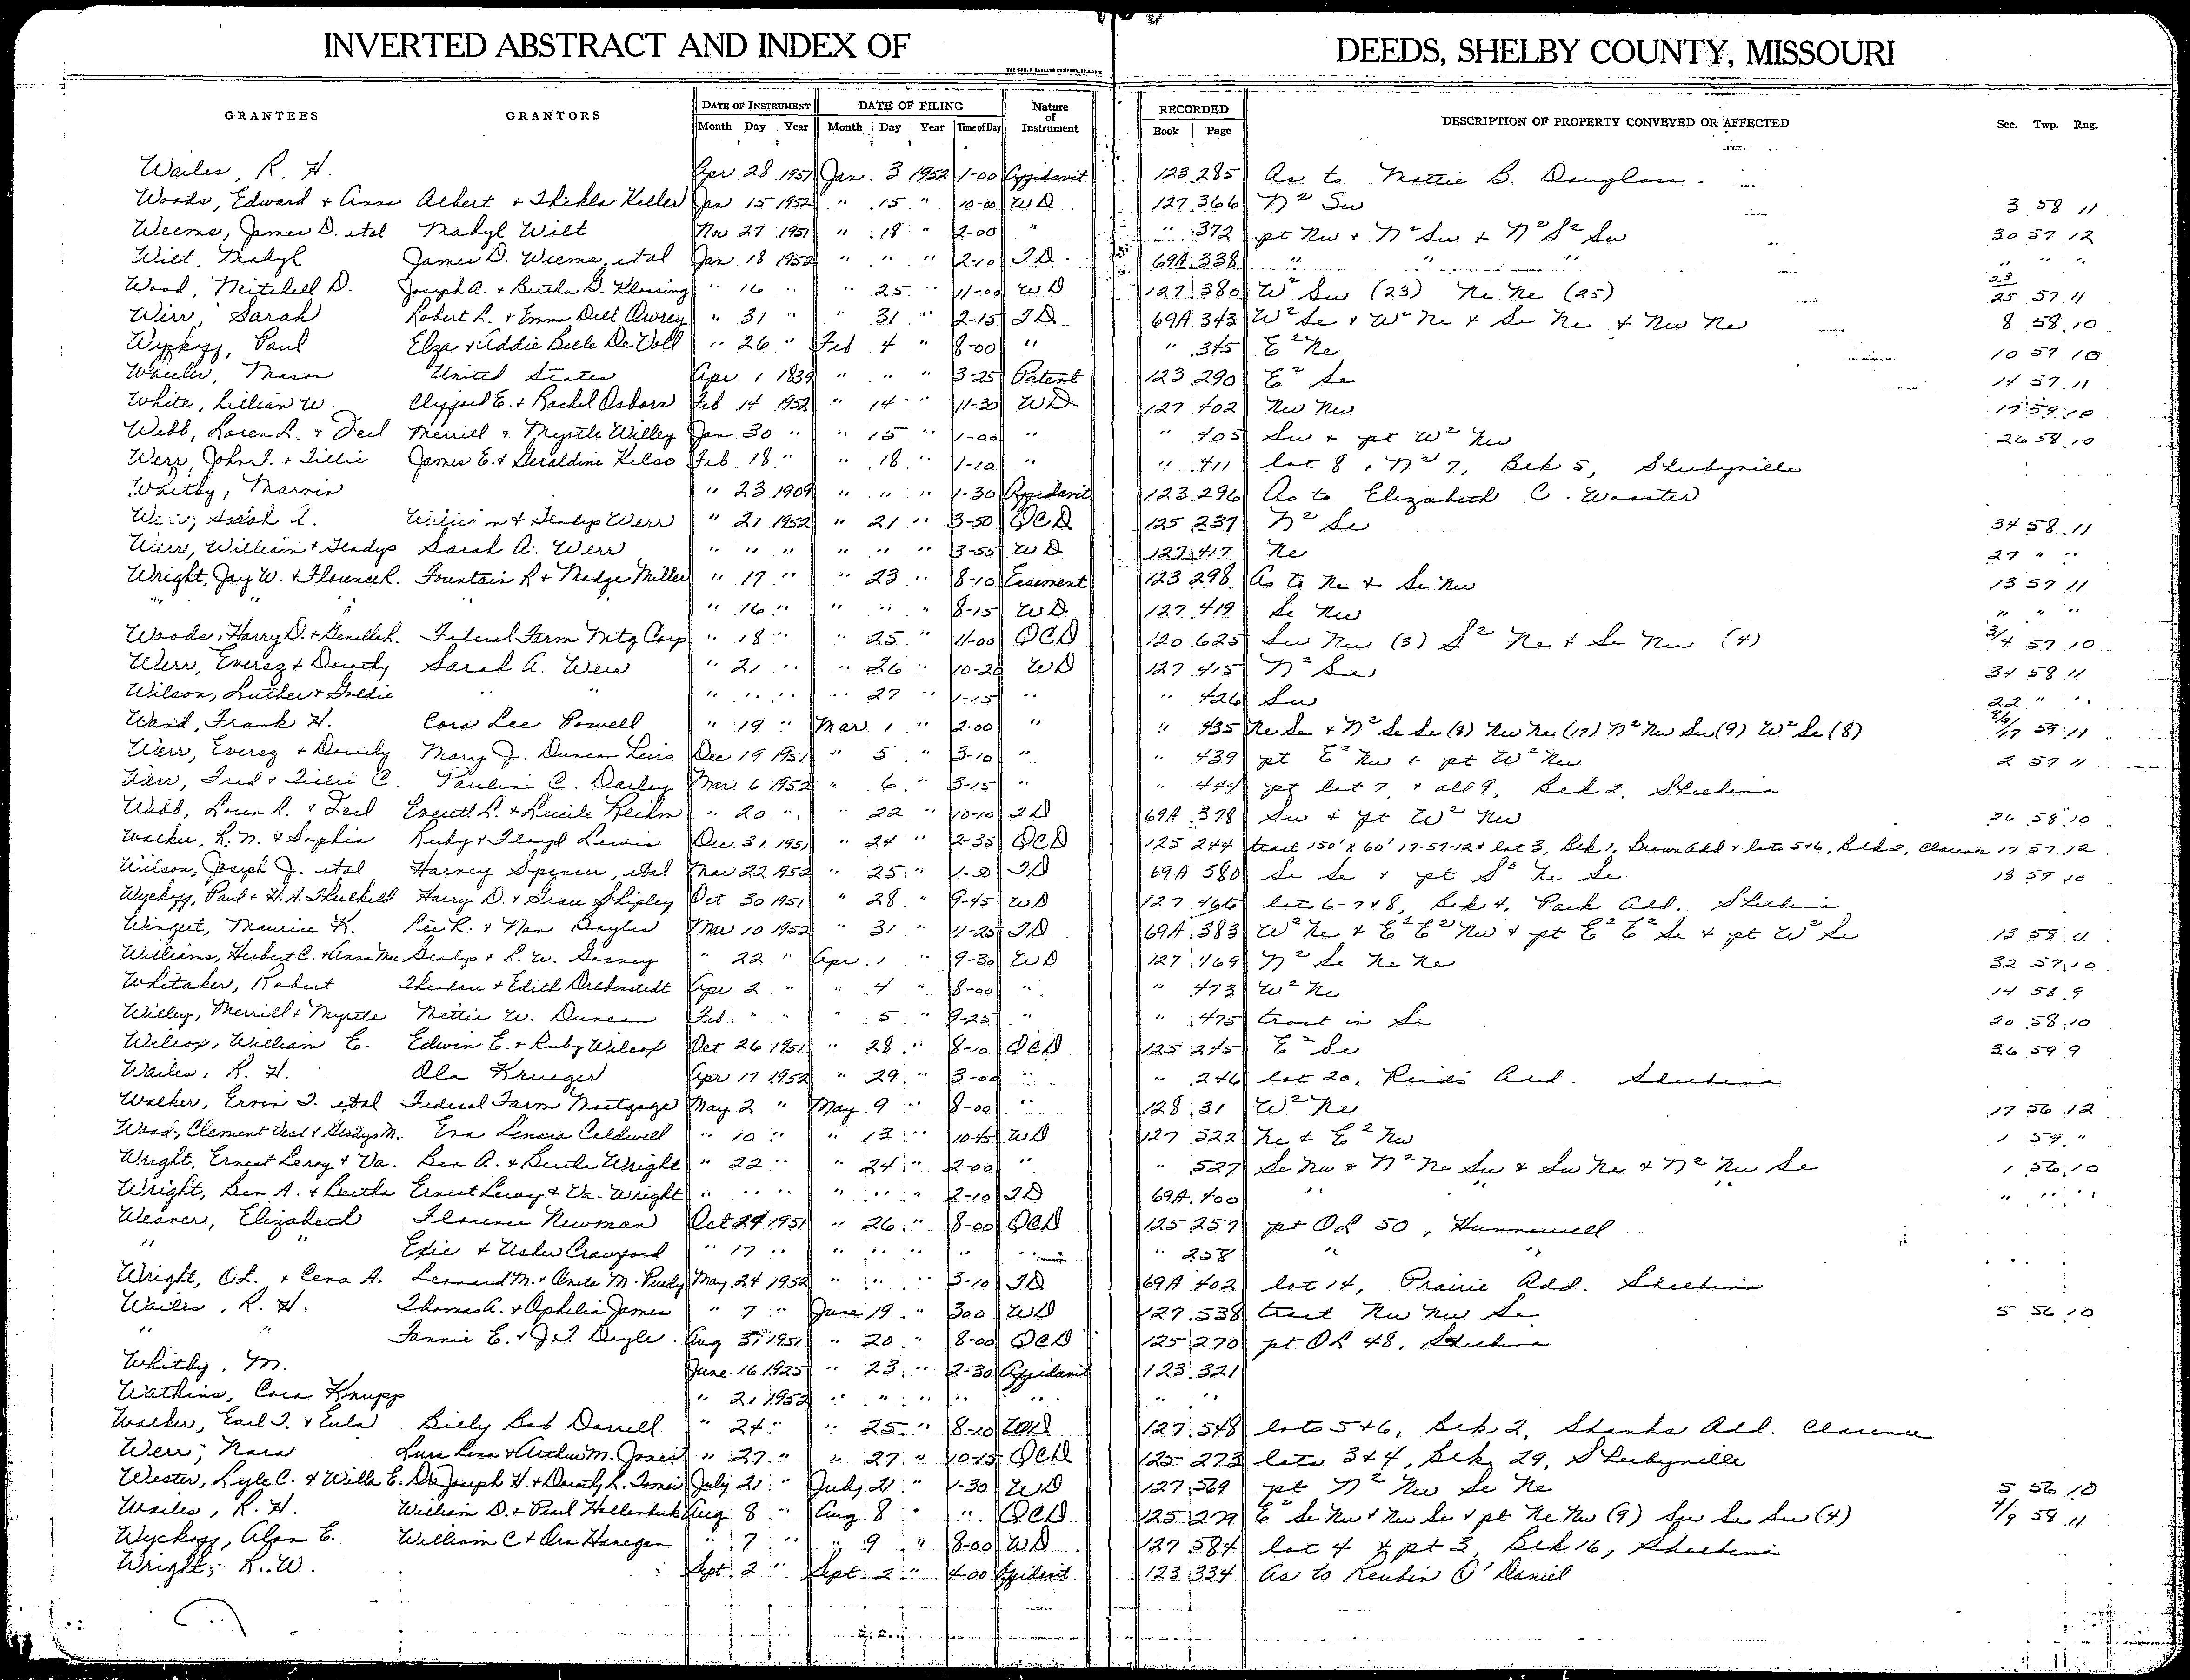 INVERTED ABSTRACT AND INDEX OF DEEDS, SHELBY COUNTY, MISSOURI
GRANTEES GRANTORS DATE OF INSTRUMENT DATE OF FILING Nature of Instrument RECORDED DESCRIPTION OF PROPERTY CONVEYED OR AFFECTED Sec. Twp. Rng.
Month Day Year Month Day Year Time of Day Book Page
Wailes, R. H. Apr 28 1951 Jan. 3 1952 1-00 Affidavit 123 285 As to Mattie B. Douglass.
Woods, Edward + Anna Albert + Thekla Keller Jan 15 1952 " 15 " 10-00 WD 127 366 N² Sw 3 58 11
Weems, James D. etal Mabyl Wilt Nov 27 1951 " 18 " 2-00 " " 372 pt Nw + N² Sw + N² S² Sw 30 57 12
Wilt, Mabyl James D. Weems, etal Jan. 18 1952 " " " 2-10 TD. 69A 338 " " " " " "
Wood, Mitchell D. Joseph A. + Bertha G. Klossing " 16 " " 25 " 11-00 WD 127 380 W² Sw (23) Ne Ne (25) 23/25 57 11
Wirr, Sarah Robert L. + Emma Dell Awrey " 31 " " 31 " 2-15 TD. 69A 343 W² Se + W² Ne + Se Ne + Nw Ne 8 58 10
Wyckoff, Paul Elza + Addie Belle De Voll " 26 " Feb 4 " 8-00 " " 345 E² Ne 10 57 10
Wheeler, Mason United States Apr 1 1839 " " " 3-25 Patent 123 290 E² Se 14 57 11
White, Lillian W. Clifford E. + Rachel Osborn Feb 14 1952 " 14 " 11-30 WD 127 402 Nw Nw 17 59 10
Webb, Loren L. + Fecl Merrill + Myrtle Willey Jan 30 " " 15 " 1-00 " " 405 Sw + pt W² Nw 26 58 10
Werr, John T. + Tillie James E. + Geraldine Kelso Feb. 18 " " 18 " 1-10 " " 411 lot 8 + N² 7, Blk 5, Shelbyville
Whitby, Marvin " 23 1909 " " " 1-30 Affidavit 123 296 As to Elizabeth C. Wooster
Sarah A. + Gladys Werr " 21 1952 " 21 " 3-50 QCD 125 237 N² Se 34 58 11
Werr, William + Gladys Sarah A. Werr " " " " " " 3-55 WD 127 417 Ne 27 " "
Wright, Jay W. + Florence R. Fountain R + Madge Miller " 17 " " 23 " 8-10 Easement 123 298 As to Ne + Se Nw 13 57 11
" " " " 16 " " " " 8-15 WD 127 419 Se Nw " " "
Woods, Harry D. + Genella R. Federal Farm Mtg Corp " 18 " " 25 " 11-00 QCD 120 625 Sw Nw (3) S² Ne + Se Nw (4) 3/4 57 10
Werr, Eversz + Dorothy Sarah A. Werr " 21 " " 26 " 10-20 WD 127 415 N² Se 34 58 11
Wilson, Luther + Goldie " " " " " " 27 " 1-15 " " 426 Sw 22 " "
Ward, Frank H. Cora Lee Powell " 19 " Mar. 1 " 2-00 " " 435 Ne Se + N² Se Se (8) Nw Ne (17) N² Nw Sw (9) W² Se (8) 8/9/17 59 11
Werr, Eversz + Dorothy Mary J. Duncan Leirs Dec 19 1951 " 5 " 3-10 " " 439 pt E² Nw + pt W² Nw 2 57 11
Werr, Fred + Tillie C. Pauline C. Dailey Mar. 6 1952 " 6 " 3-15 " " 444 pt lot 7 + all 9, Blk 2, Shelbina
Webb, Loren L. + Fecl Everett L. + Lucile Keilson " 20 " " 22 " 10-10 TD 69A 378 Sw + pt W² Nw 26 58 10
Walker, R. N. + Sophia Ruby + Floyd Lewis Dec. 31 1951 " 24 " 2-35 QCD 125 244 tract 150' x 60' 17-57-12 + lot 3, Blk 1, Brown Add + lots 5+6, Blk 2, Clarence 17 57 12
Wilson, Joseph J. etal Harvey Spencer, etal Mar 22 1952 " 25 " 1-50 TD 69A 380 Se Se + pt S² Ne Se 18 59 10
Wyckoff, Paul + H. A. Threlkeld Harry D. + Grace Shipley Oct 30 1951 " 28 " 9-45 WD 127 466 lots 6-7+8, Blk 4, Park Add. Shelbina
Wingert, Maurice K. Lee R. + Nan Bayliss Mar 10 1952 " 31 " 11-25 TD 69A 383 W² Ne + E² E² Nw + pt E² E² Se + pt W² Se 13 58 11
Williams, Herbert C. + Anna Mae Gladys + L. W. Gosney " 22 " Apr. 1 " 9-30 WD 127 469 N² Se Ne Ne 32 57 10
Whitaker, Robert Theodore + Edith Drebenstedt Apr. 2 " " 4 " 8-00 " " 473 W² Ne 14 58 9
Willey, Merrill + Myrtle Nettie W. Duncan Feb. " " " 5 " 9-25 " " 475 tract in Se 20 58 10
Wilcox, William E. Edwin E. + Ruby Wilcox Oct 26 1951 " 28 " 8-10 QCD 125 245 E² Se 36 59 9
Wailes, R. H. Ola Krueger Apr. 17 1952 " 29 " 3-00 " " 246 lot 20, Reids Add. Shelbina
Walker, Ervin T. etal Federal Farm Mortgage May 2 " May 9 " 8-00 " 128 31 W² Ne 17 56 12
Wood, Clement Vest + Gladys M. Eva Lencia Caldwell " 10 " " 13 " 10-45 WD 127 522 Ne + E² Nw 1 59 "
Wright, Ernest Leroy + Va. Ben A. + Bertha Wright " 22 " " 24 " 2-00 " " 527 Se Nw + N² Ne Sw + Sw Ne + N² Nw Se 1 56 10
Wright, Ben A. + Bertha Ernest Leroy + Va. Wright " " " " " " 2-10 TD 69A 400 " " " " " "
Weaver, Elizabeth Florence Newman Oct 24 1951 " 26 " 8-00 QCD 125 257 pt OL 50, Hunnewell
" " Effie + Usher Crawford " 17 " " " " " " " 258 " "
Wright, O.L. + Cena A. Leonard M. + Oneta M. Purdy May 24 1952 " " " 3-10 TD 69A 402 lot 14, Prairie Add. Shelbina
Wailes, R. H. Thomas A. + Ophelia James " 7 " June 19 " 300 WD 127 538 tract Nw Nw Se 5 56 10
" " Fannie E. + J. T. Doyle Aug 31 1951 " 20 " 8-00 QCD 125 270 pt OL 48, Shelbina
Whitby, M. June 16 1925 " 23 " 2-30 Affidavit 123 321
Watkins, Cora Knupp " 21 1952 " " " " " " "
Walker, Earl T. + Eula Billy Bob Darrell " 24 " " 25 " 8-10 WD 127 548 lots 5+6, Blk 2, Shanks Add. Clarence
Werr, Nara Lura Lena + Arthur M. Jones " 27 " " 27 " 10-15 QCD 125 273 lots 3+4, Blk 29, Shelbyville
Wester, Lyle C. + Willa E. Joseph H. + Dorothy L. July 21 " July 21 " 1-30 WD 127 569 pt N² Nw Se Ne 5 56 10
Wailes, R. H. William D. + Pearl Hollenbeck Aug 8 " Aug. 8 " " QCD 125 279 E² Se Nw + Nw Se + pt Ne Nw (9) Sw Se Sw (4) 4/9 58 11
Wyckoff, Alan E. William C + Ora Hanegan " 7 " " 9 " 8-00 WD 127 584 lot 4 + pt 3, Blk 16, Shelbina
Wright, R. W. Sept 2 " Sept 2 " 4-00 Affidavit 123 334 As to Reubin O'Daniel